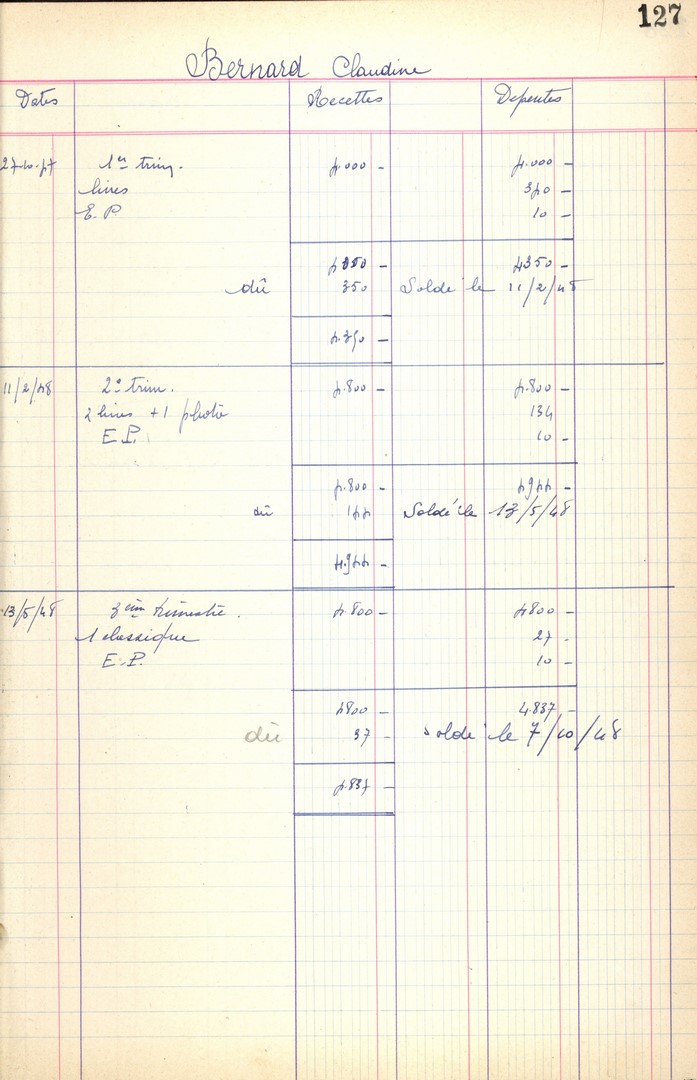 127
Bernard Claudine
Dates Recettes Depenses
27-10-47 1er trim. 4.000 - 4.000 -
livres 340 -
E.P. 10 -
4000 - 4350 -
dû 350 Soldé le 11/2/48
4.350 -
11/2/48 2e trim. 4.800 - 4.800 -
2 livres + 1 photo 134
E.P. 10 -
4.800 - 4944 -
dû 144 Soldé le 13/5/48
4.944 -
13/5/48 3ème trimestre. 4.800 - 4800 -
1 classique 27 -
E.P. 10 -
4800 - 4.837 -
dû 37 - soldé le 7/10/48
4.837 -